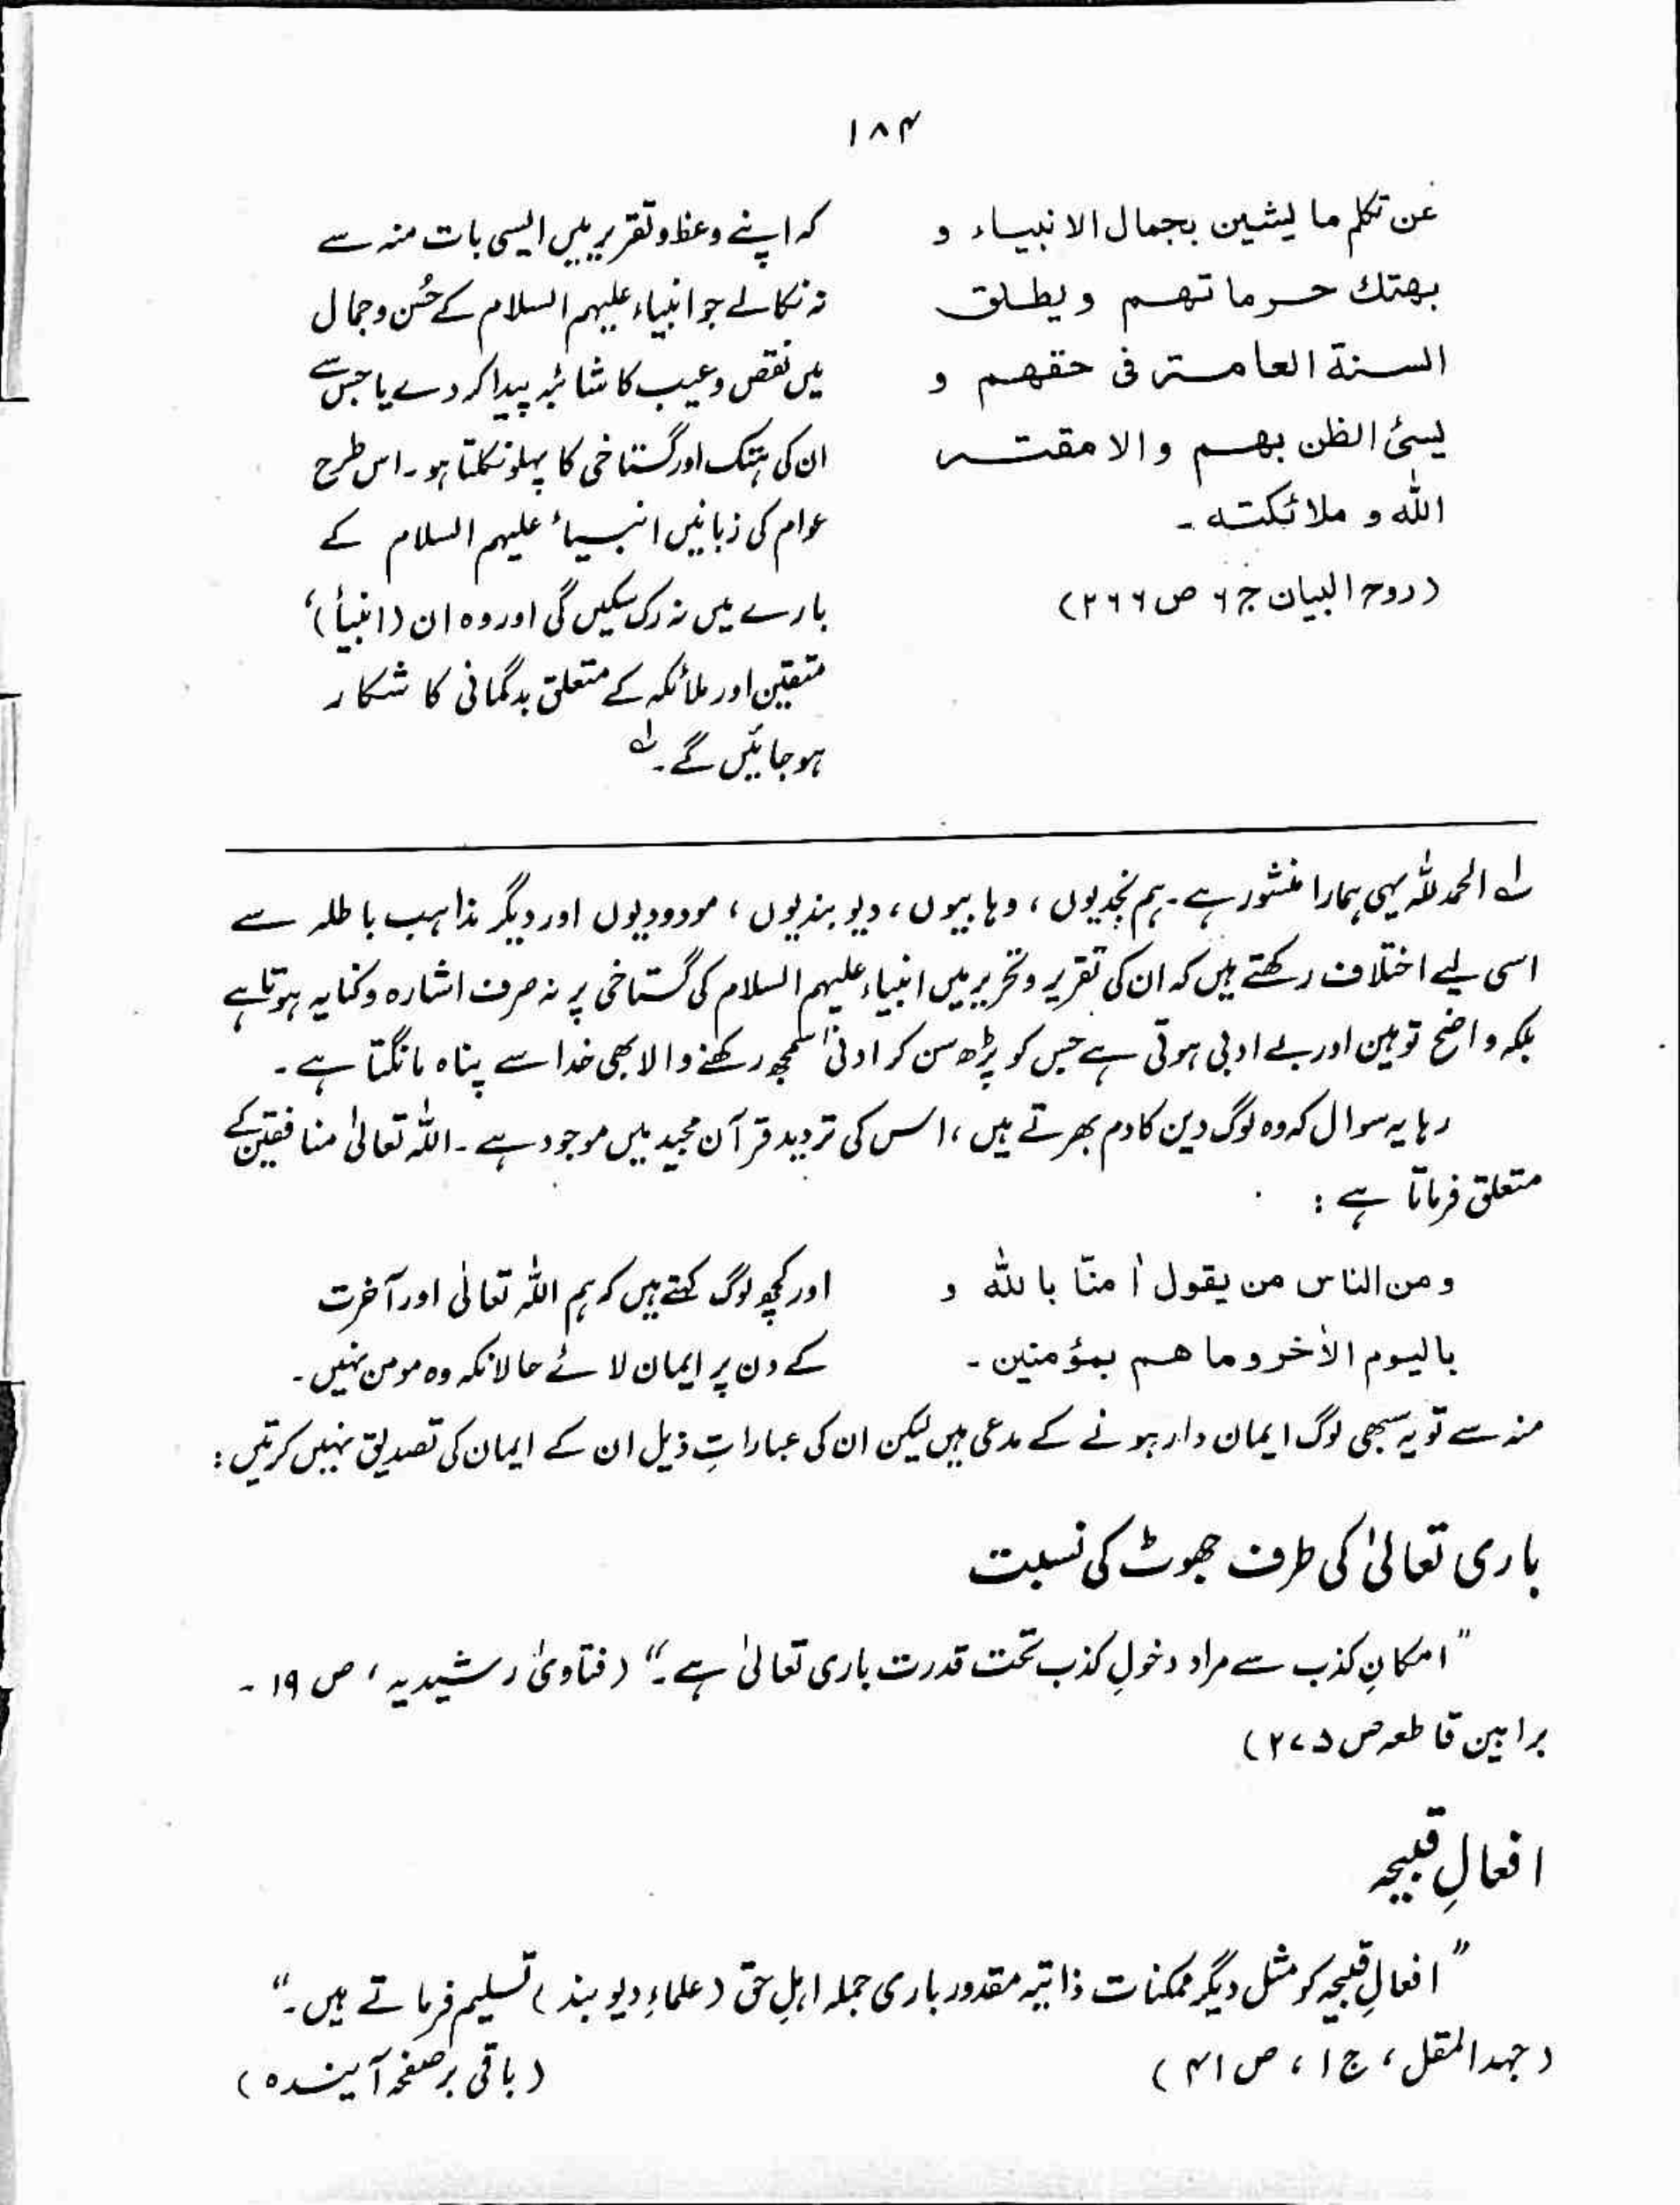 ۱۸۴
عن تكلم ما يشين بجمال الانبياء و
بهتك حرماتهم ويطلق
السنة العامة فى حقهم و
يسئ الظن بهم والا مقته
الله و ملائكته ۔
(روح البیان ج ۶ ص ۲۶۶)
کہ اپنے وعظ و تقریر میں ایسی بات منہ سے
نہ نکالے جو انبیاء علیہم السلام کے حُسن و جمال
میں نقص و عیب کا شائبہ پیدا کر دے یا جس سے
ان کی ہتک اور گستاخی کا پہلو نکلتا ہو ۔ اس طرح
عوام کی زبانیں انبیاءٔ علیہم السلام کے
بارے میں نہ رک سکیں گی اور وہ ان (انبیأ)،
متقین اور ملائکہ کے متعلق بدگمانی کا شکار
ہو جائیں گے ۔ ؎۱
؎۱ الحمد للہ یہی ہمارا منشور ہے ۔ ہم نجدیوں ، وہابیوں ، دیوبندیوں ، مودودیوں اور دیگر مذاہب باطلہ سے
اسی لیے اختلاف رکھتے ہیں کہ ان کی تقریر و تحریر میں انبیاء علیہم السلام کی گستاخی پر نہ صرف اشارہ و کنایہ ہوتا ہے
بلکہ واضح توہین اور بے ادبی ہوتی ہے جس کو پڑھ سن کر ادنیٰ سمجھ رکھنے والا بھی خدا سے پناہ مانگتا ہے ۔
رہا یہ سوال کہ وہ لوگ دین کا دم بھرتے ہیں ، اس کی تردید قرآن مجید میں موجود ہے ۔ اللہ تعالیٰ منافقین کے
متعلق فرماتا ہے :
ومن الناس من يقول اٰمنّا بالله و
باليوم الاٰخر وما هم بمؤمنين ۔
اور کچھ لوگ کہتے ہیں کہ ہم اللہ تعالیٰ اور آخرت
کے دن پر ایمان لائے حالانکہ وہ مومن نہیں ۔
منہ سے تو یہ سبھی لوگ ایمان دار ہونے کے مدعی ہیں لیکن ان کی عباراتِ ذیل ان کے ایمان کی تصدیق نہیں کرتیں :
باری تعالیٰ کی طرف جھوٹ کی نسبت
”امکانِ کذب سے مراد دخولِ کذب تحت قدرت باری تعالیٰ ہے ۔“ (فتاویٰ رشیدیہ ، ص ۱۹ ۔
براہین قاطعہ ص ۲۷۵)
افعالِ قبیحہ
”افعالِ قبیحہ کو مثل دیگر ممکنات ذاتیہ مقدور باری جملہ اہلِ حق (علماءِ دیوبند) تسلیم فرماتے ہیں ۔“
(جہد المقل ، ج ۱ ، ص ۴۱)
(باقی بر صفحہ آیندہ)